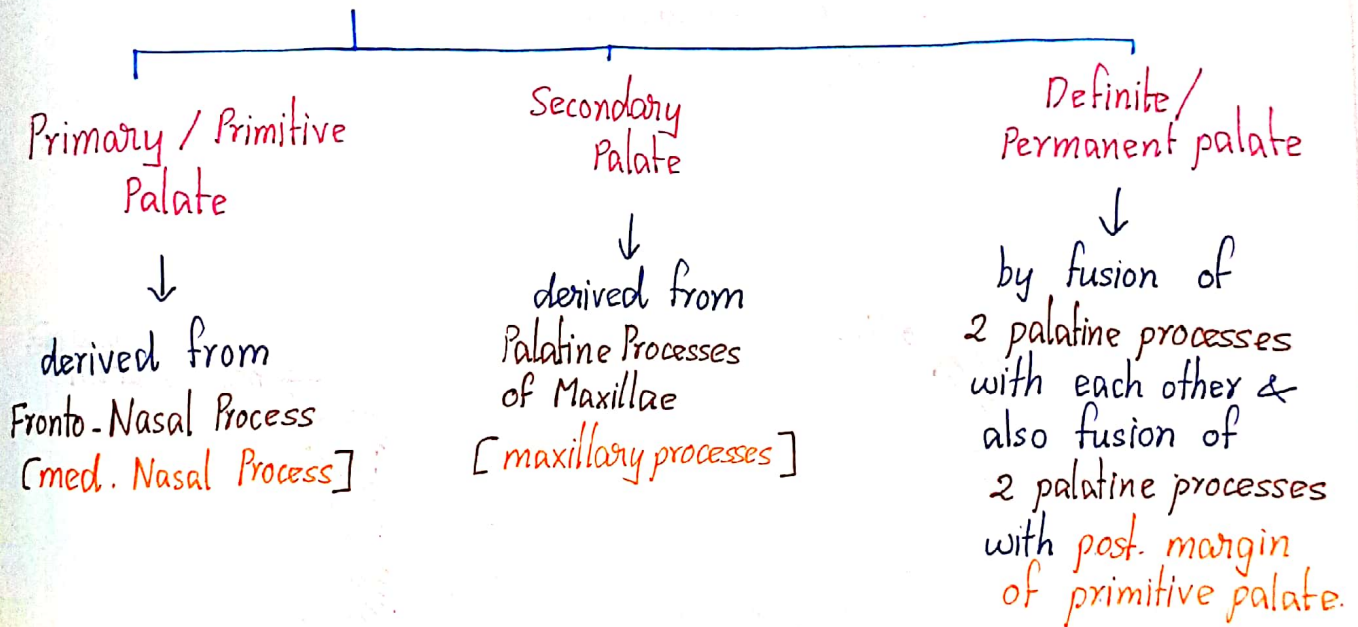 Primary / Primitive
Palate
derived from
Fronto-Nasal Process
[med. Nasal Process]
Secondary
Palate
derived from
Palatine Processes
of Maxillae
[maxillary processes]
Definite/
Permanent palate
by fusion of
2 palatine processes
with each other &
also fusion of
2 palatine processes
with post. margin
of primitive palate.